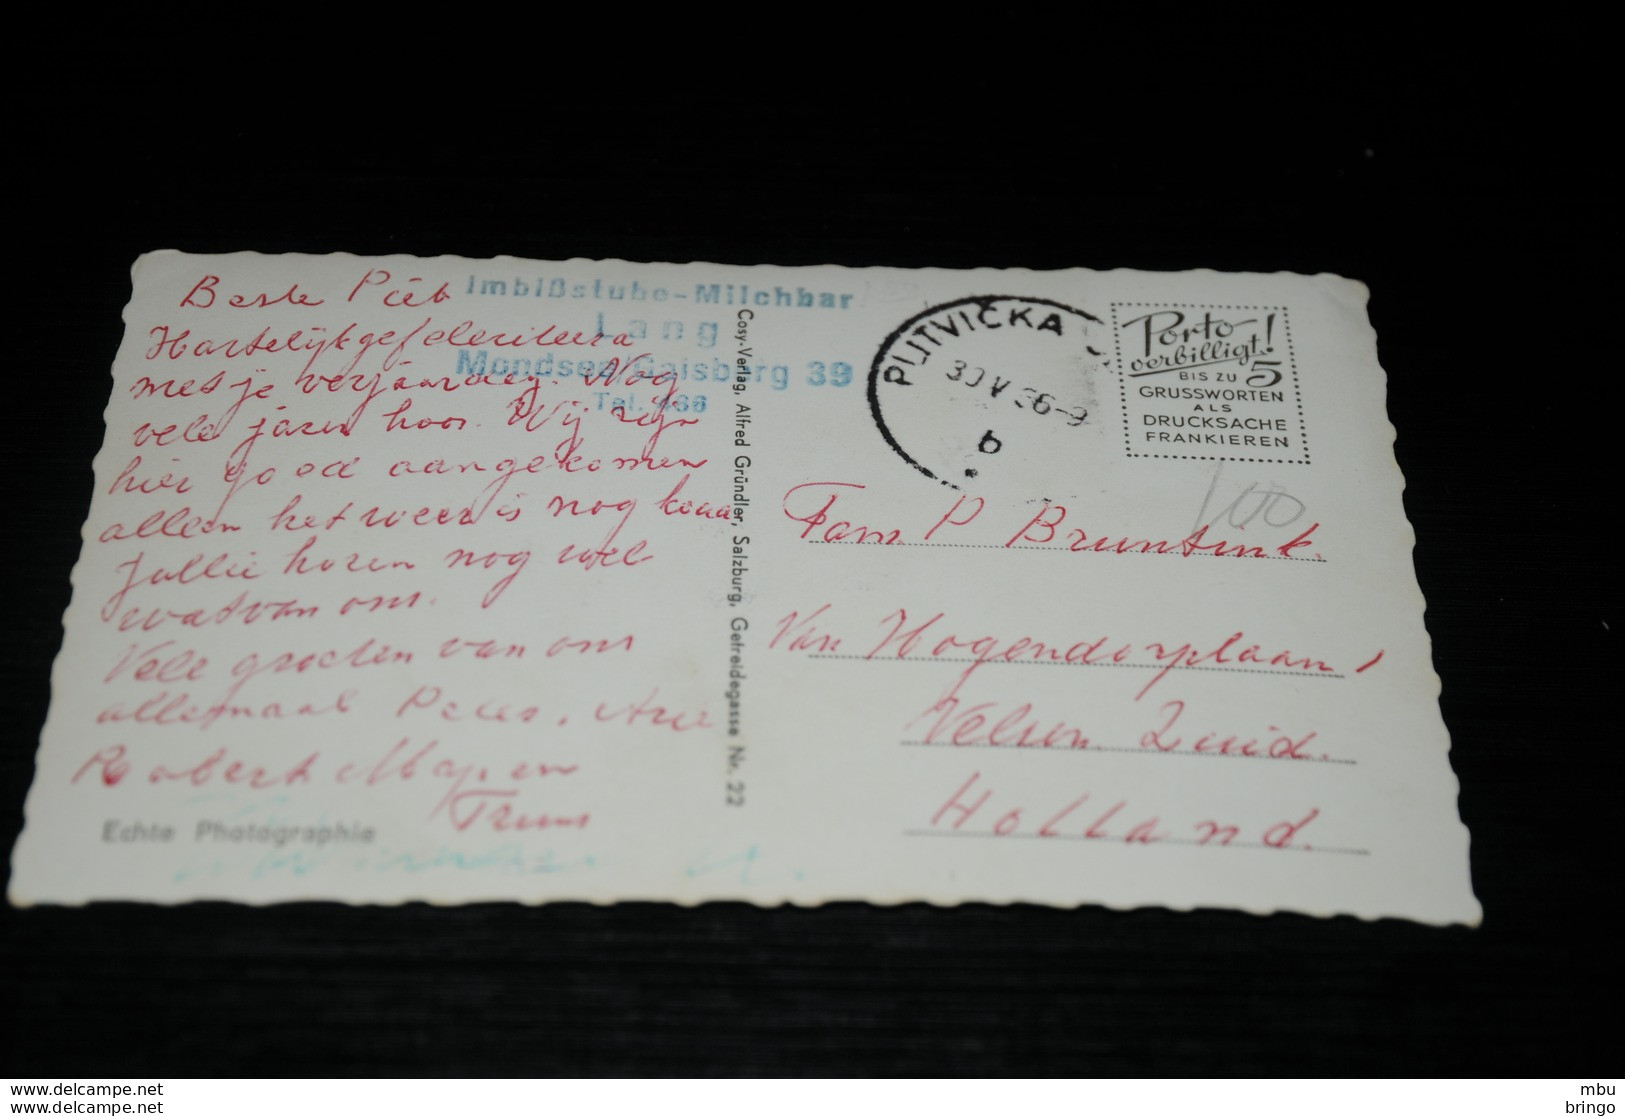 Beste Piet
Hartelijk gefeleciteerd
met je verjaardag. Nog
vele jaren hoor. Wij zijn
hier goed aangekomen
alleen het weer is nog koud
jullie horen nog wel
wat van ons.
Vele groeten van ons
allemaal Pe Arie
Robert en
Truus
Echte Photographie
Imbißstube-Milchbar
Lang
Mondsee/Gaisberg 39
Tel. 486
Cosy-Verlag, Alfred Gründler, Salzburg, Getreidegasse Nr. 22
PUTVIČKA
30 V 66-9
b
Porto
verbilligt!
BIS ZU 5
GRUSSWORTEN
ALS
DRUCKSACHE
FRANKIEREN
100
Fam. P Bruntink.
Van Hogendorplaan 1
Velsen Zuid.
Holland.
www.delcampe.net
www.delcampe.net
mbu
bringo